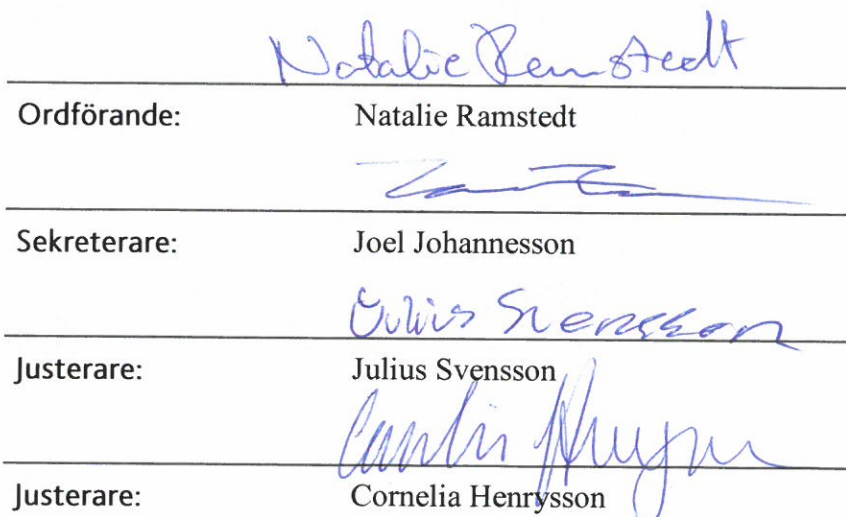 Natalie Ramstedt
Ordförande: Natalie Ramstedt
Sekreterare: Joel Johannesson
Julius Svensson
Justerare: Julius Svensson
Justerare: Cornelia Henrysson